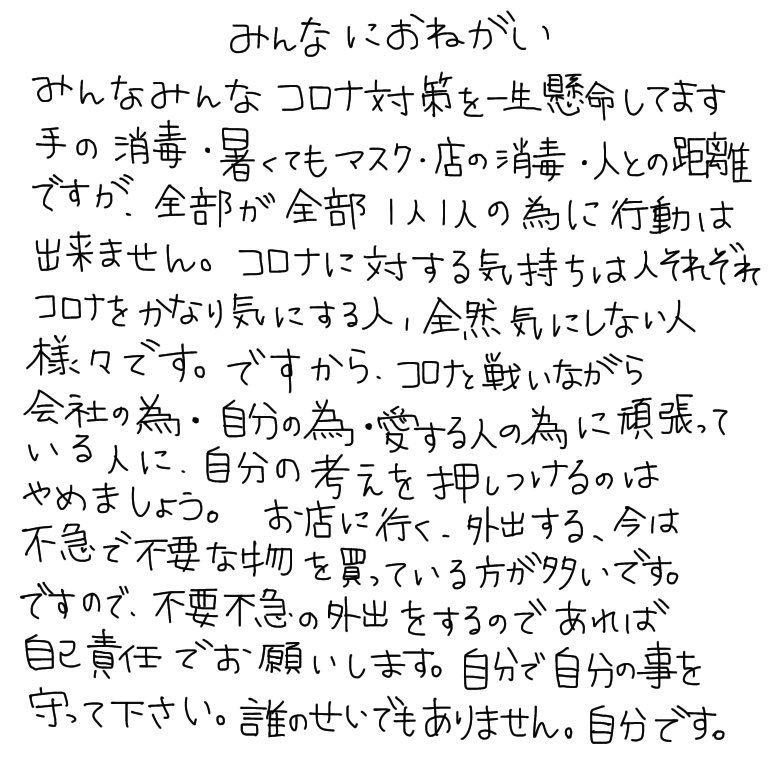 みんなにおねがい
みんなみんなコロナ対策を一生懸命してます
手の消毒・暑くてもマスク・店の消毒・人との距離
ですが、全部が全部1人1人の為に行動は
出来ません。コロナに対する気持ちは人それぞれ
コロナをかなり気にする人、全然気にしない人
様々です。ですから、コロナと戦いながら
会社の為・自分の為・愛する人の為に頑張って
いる人に、自分の考えを押しつけるのは
やめましょう。 お店に行く、外出する、今は
不急で不要な物を買っている方が多いです。
ですので、不要不急の外出をするのであれば
自己責任でお願いします。自分で自分の事を
守って下さい。誰のせいでもありません。自分です。